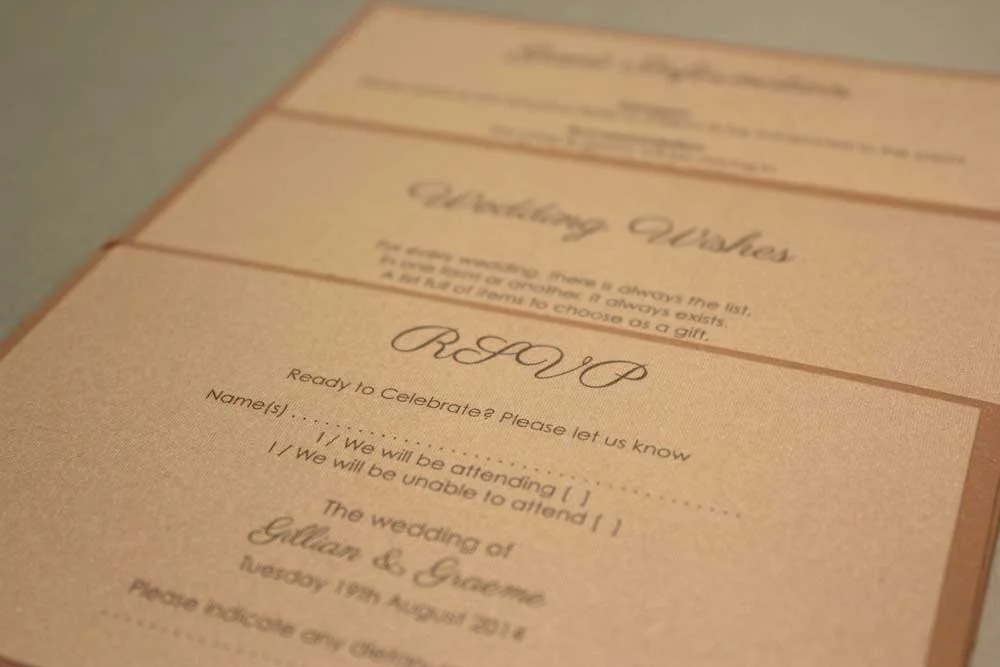 Guest Information
Wedding Wishes
For every wedding, there is always the list,
In one form or another, it always exists.
A list full of items to choose as a gift.
RSVP
Ready to Celebrate? Please let us know
Name(s) ........................................
I / We will be attending [ ]
I / We will be unable to attend [ ]
The wedding of
Gillian & Graeme
Tuesday 19th August 2014
Please indicate any dietary